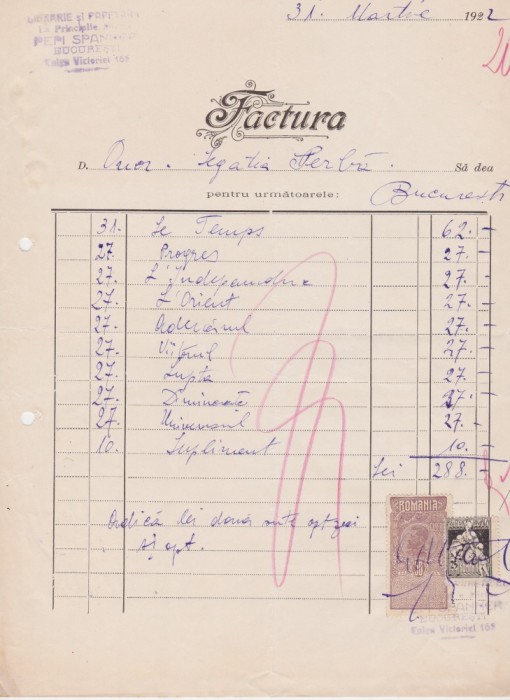 LIBRĂRIE și PAPETĂRIE
La Principile
PEPI SPANNER
BUCUREȘTI
Calea Victoriei 155
31. Martie 1922
Factura
D. Onor. Legatia Serbă. Să dea
pentru următoarele: București
31. Le Temps 62.-
27. Progres 27.-
27. L'Independance 27.-
27. L'Orient 27.-
27. Adevărul 27.-
27. Viitorul 27.-
27. Lupta 27.-
27. Dimineața 27.-
27. Universul 27.-
10. Supliment 10.-
Lei 288.-
Adică lei două sute optzeci
și opt.
ROMANIA
BUCUREȘTI
Calea Victoriei 155